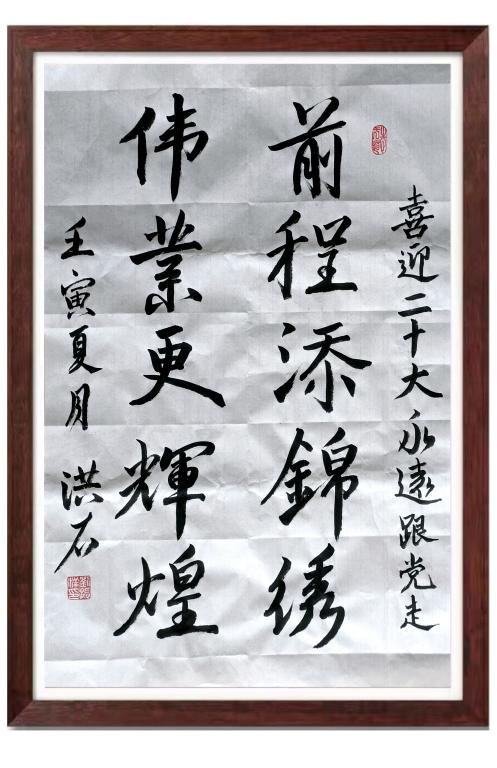 喜迎二十大永遠跟党走
前程添錦绣
伟業更輝煌
壬寅夏月 洪石